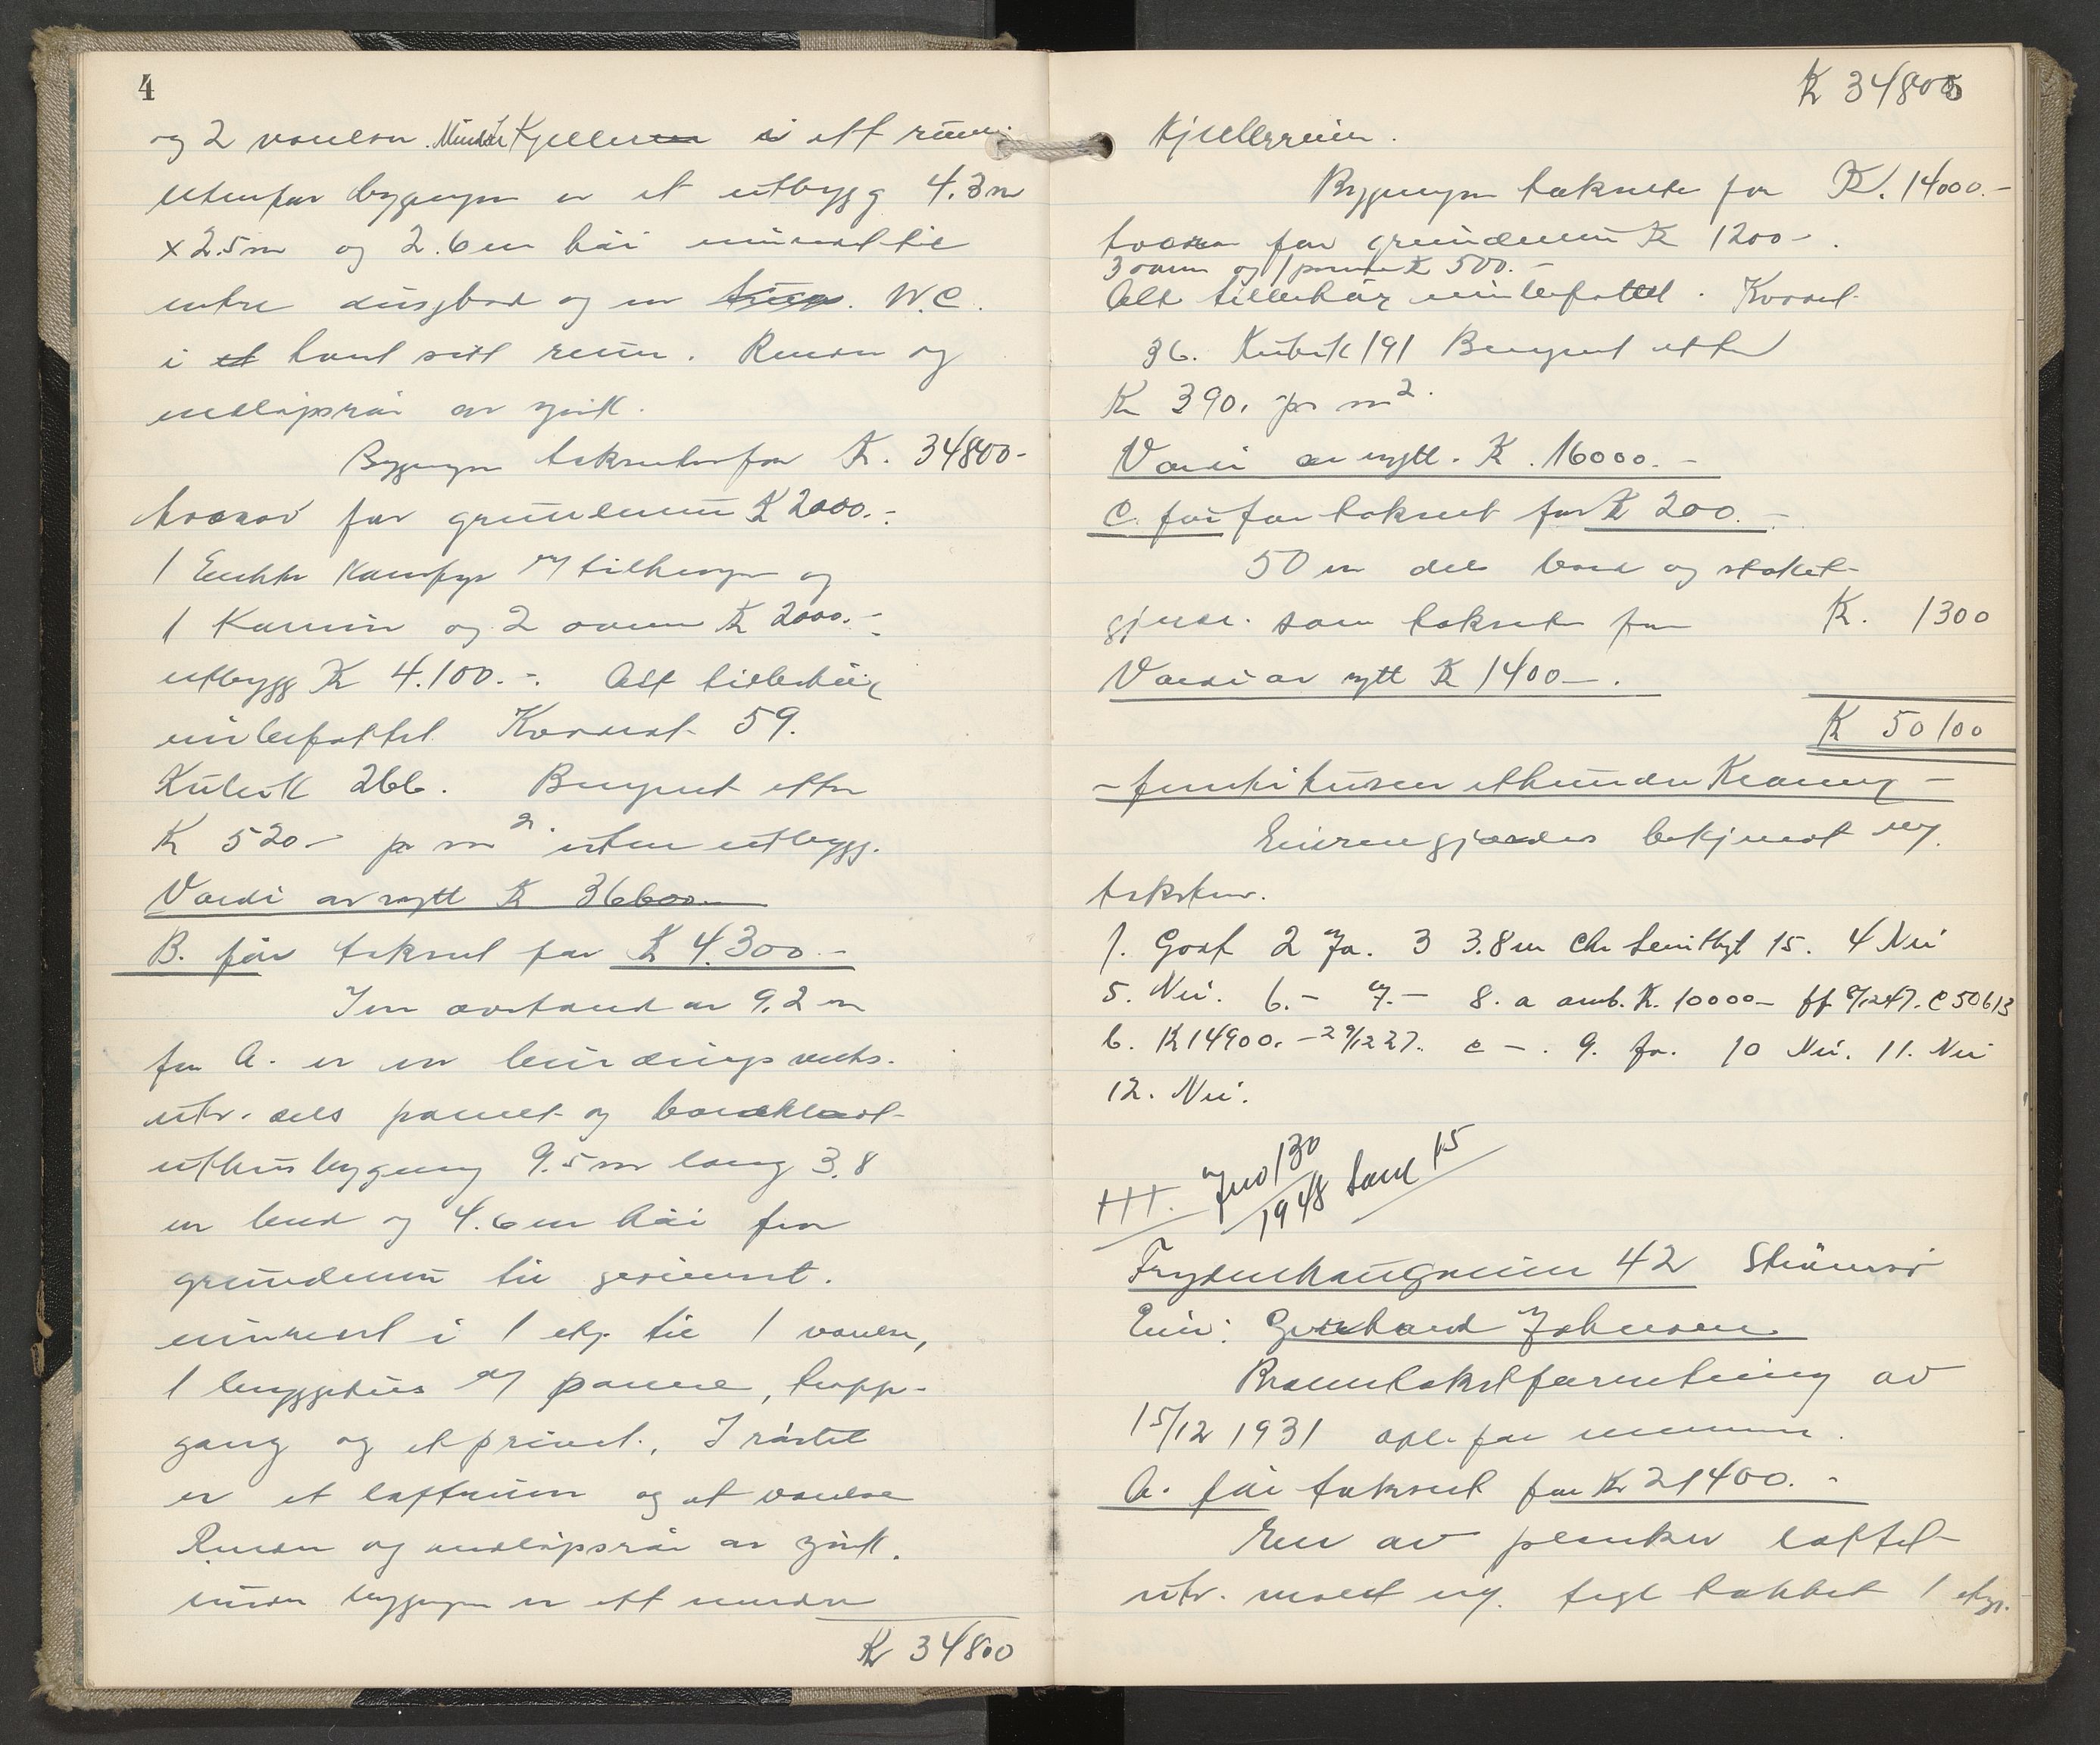 4
og 2 værelser. Mindre Kjeller i ett rum
utenfor bygningen er et utbygg 4.3 m
x 2.5 m og 2.6 m høi innredet til
entre dusjbad og en W.C.
i et hvert sitt rum. Render og
nedløpsrør av zink.
Bygningen taksert for K. 34800-
hvorav for grunnmur K 2000.-
1 kamfyr m/ tilheng og
1 Kamin og 2 ovner K 2000.-
utbygg K 4.100.-. Alt tilbehør
innbefattet Kvadrat 59.
Kubik 266. Beregnet efter
K 520- pr m². uten utbygg.
Værdi av nytt K 36600.-
B. før taksert for K 4.300.-
I en avstand av 9.2 m
fra A. er en bindingsverks.
utv. dels panelt og bordklædt
uthusbygning 9.5 m lang 3.8
m bred og 4.6 m høi fra
grundmur til gesimset.
innredet i 1 etg. til 1 værelse,
1 bryggehus m/ panne, trapp-
gang og et privet., I røstet
er et loftrum og et værelse
Render og nedløpsrør av zink.
under bygningen er ett mindre
Kr 34800
K 34800
5
Kjellerrum.
Bygningen takseres for K. 14000.-
hvorav for grundmur K 1200-.
3 ovner og 1 panne K 500.-
Alt tilbehør innbefattet. Kvadrat
36. Kubik 191 Beregnet efter
K 390. pr m².
Værdi av nytt. K. 16000.-
C. før for taksert for K 200.-
50 m dels bord og staket-
gjerde. som takseres for K. 1300
Værdi av nytt K 1400-.
K 50100
- femti tusen ethundre Kroner -
Eieren gjordes bekjent m/.
taksten.
1. Godt 2 Ja. 3 3.8 m 15. 4 Nei
5. Nei. 6.- 7.- 8. a amb. K. 10000- ff 8/12 47. C 50613
b. K 14900.- 29/12 27. c -. 9. Ja. 10 Nei. 11. Nei
12. Nei.
III. Jno 130/1948 15
Frydenhauggaten 42 Strømsø
Eier: Gerhard Johnsen
Branntakstforretning av
15/12 1931 opl. for
A. før taksert for Kr 21400.-
En av planker loftet
utv. malt m/. tegl takket 1 etgs.